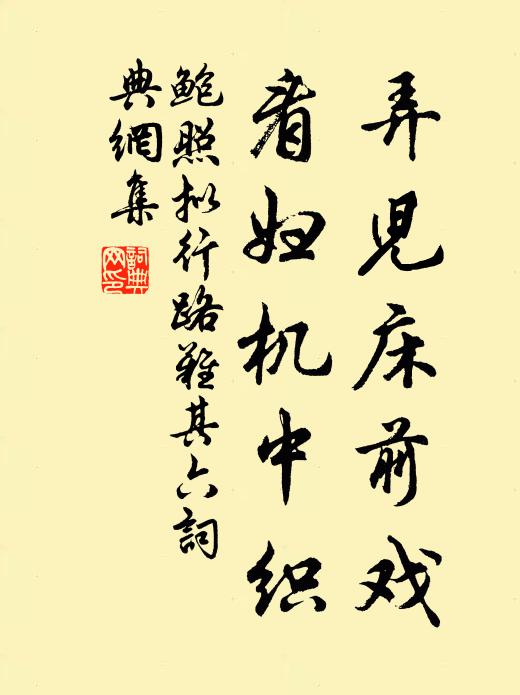 弄児床前戏
看妇机中织
鲍照拟行路难其六詞
典網集
詞典
网印